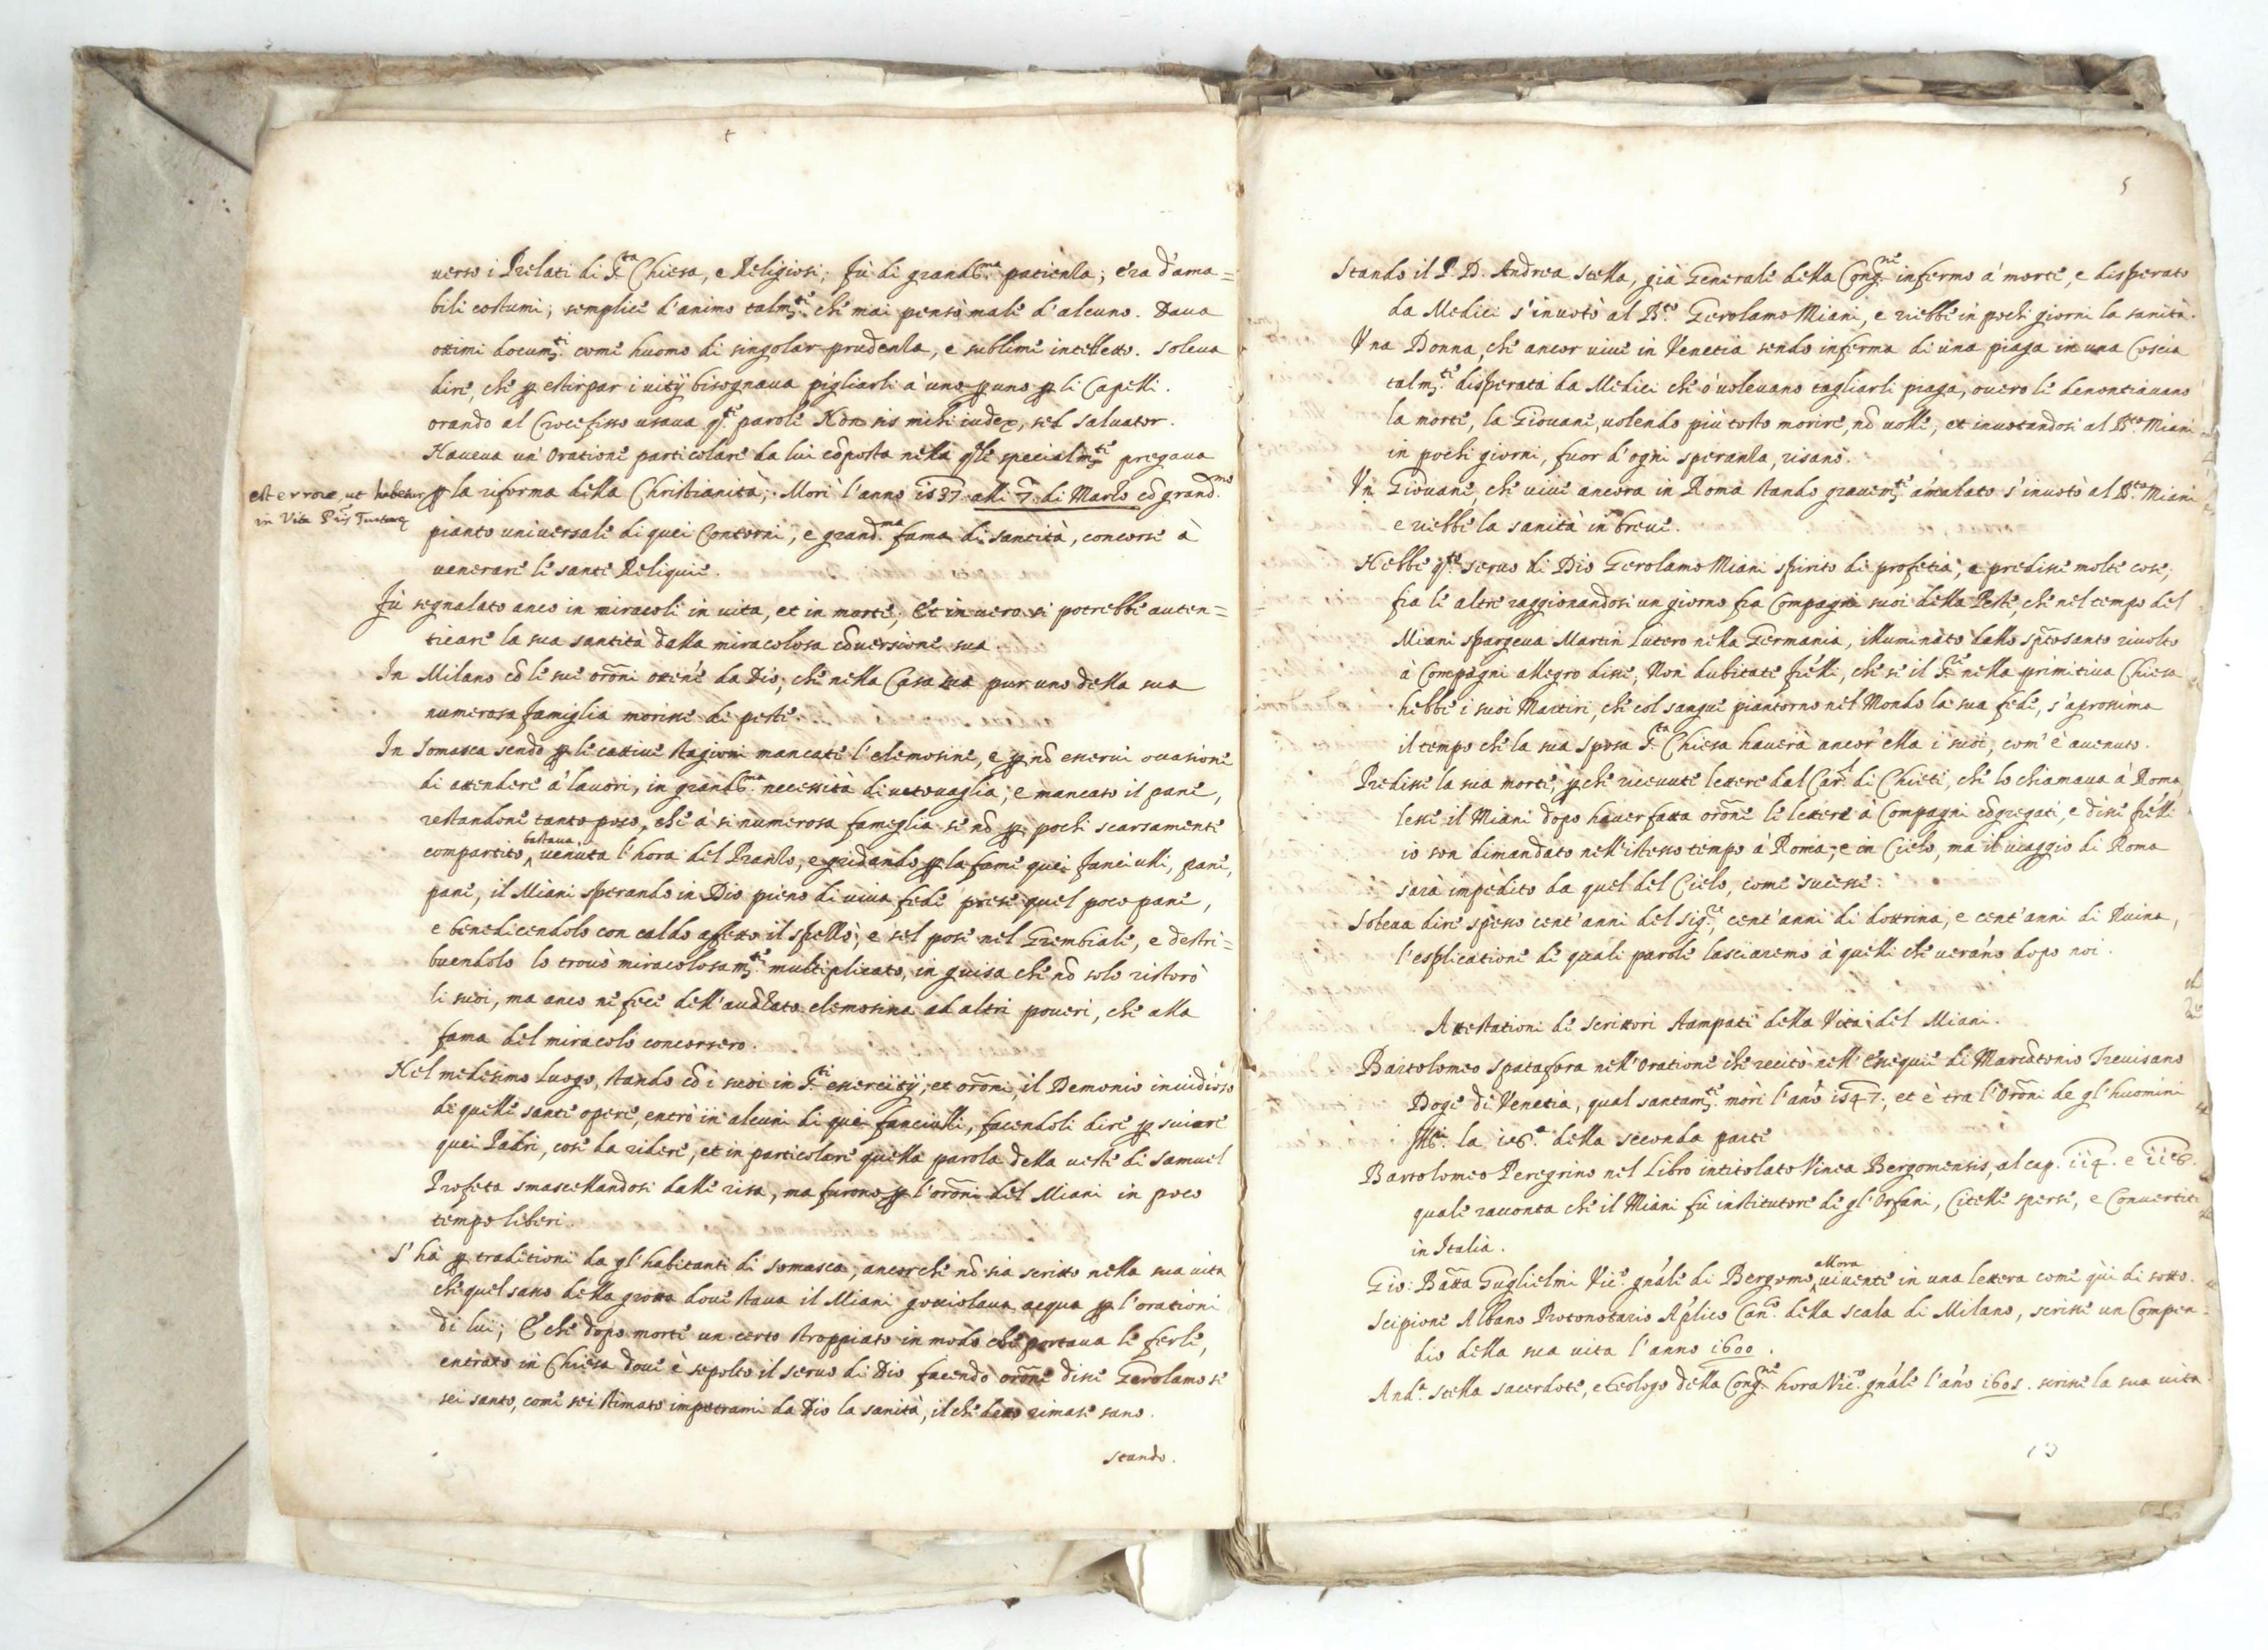 verso i Prelati di S.ta Chiesa, e Religiosi; fù di grandis.ma patienza; era d'ama=
bili costumi; semplice d'animo talm.te che mai pensò male d'alcuno. Dava
ottimi docum.ti come huomo di singolar prudenza, e sublime intelletto. Soleva
dire, che ꝑ estirpar i vitÿ bisognava pigliarli à uno ꝑ uno ꝑ li Capelli.
orando al Crocefisso usava q.te parole Non sis mihi iudex, sed Salvator.
Haveva un'Oratione particolare da lui cōposta nella q̃le specialm.te pregava
ꝑ la riforma della Christianità; Morì l'anno 1537. alli 7. di Marzo cō grand.mo
est error, ut habetur
in Vita P̃ris Turturæ
pianto universale di quei Contorni, e grand.ma fama di santità, concorse à
venerare le sante Reliquie.
Fù segnalato anco in miracoli in vita, et in morte; Et in vero si potrebbe auten=
ticare la sua santità dalla miracolosa cōversione sua.
In Milano cō le sue orōni ottenè da Dio, che nella Casa sua pur uno della sua
numerosa famiglia morisse di peste.
In Somasca sendo ꝑ le cattive stagioni mancate l'elemosine, e ꝑ nō esservi occasione
di attendere à lavori, in grandis.ma necessità di vettovaglia; e mancato il pane,
restandone tanto poco, che à sì numerosa fameglia se nō ꝑ pochi scarsamente
compartito bastava, venuta l'hora del Pranzo, e gridando ꝑ la fame quei fanciulli, pane,
pane, il Miani sperando in Dio pieno di viva fede prese quel poco pane,
e benedicendolo con caldo affetto il spezzò; e sel pose nel Grembiale, e destri=
buendolo lo trovò miracolosam.te multiplicato, in guisa che nō solo ristorò
li suoi, ma anco ne fece dell'avāzato elemosina ad altri poveri, che alla
fama del miracolo concorsero.
Nel medesimo luogo, stando cō i suoi in S.ti essercitÿ, et orōni, il Demonio invidioso
di quelle sante opere, entrò in alcuni di quei fanciulli, facendoli dire ꝑ sviare
quei Padri, cose da ridere, et in particolare quella parola della veste di Samuel
Profeta smascellandosi dalle risa, ma furono ꝑ l'orōni del Miani in poco
tempo liberi.
S'hà ꝑ traditione da gl'habitanti di Somasca, ancorche nō sia scritto nella sua vita
che quel sasso della grotta dove stava il Miani gocciolava acqua ꝑ l'orationi
di lui; E che dopo morte un certo stroppiato in modo che portava le ferle,
entrato in Chiesa dove è sepolto il servo di Dio facendo orōne disse Gerolamo se
sei santo, come sei stimato impetrami da Dio la sanità, il che detto rimase sano.
stando.
5
Stando il P. D. Andrea Stella, già Generale della Cong.ne infermo à morte, e disperato
da Medici s'invotò al B.to Gerolamo Miani, e riebbe in pochi giorni la sanità.
Una Donna, che ancor vive in Venetia sendo inferma di una piaga in una Coscia
talm.te disperata da Medici che ò volevano tagliarli piaga, overo li denontiavano
la morte, la Giovane, volendo più tosto morire, nō volle, et invotandosi al B.to Miani
in pochi giorni, fuor d'ogni speranza, risanò.
Un Giovane, che vive ancora in Roma stando gravem.te amalato s'invotò al B.to Miani
e riebbe la sanità in breve.
Hebbe q.to servo di Dio Gerolamo Miani spirito di profetia, e predisse molte cose;
fra le altre raggionandosi un giorno fra Compagni suoi della Peste, che nel tempo del
Miani spargeva Martin Lutero nella Germania, illuminato dallo sp̃to santo rivolto
à Compagni allegro disse; Non dubitate frẽlli, che se il S.re nella primitiva Chiesa
hebbe i suoi Martiri, che col sangue piantorno nel Mondo la sua fede, s'aprossima
il tempo che la sua sposa S.ta Chiesa haverà ancor'ella i suoi, com'è avenuto.
Predisse la sua morte, ꝑche ricevute lettere dal Car.l di Chieti, che lo chiamava à Roma,
lesse il Miani dopo haver fatta orōne le lettere à Compagni cōgregati, e disse frẽlli
io son dimandato nell'istesso tempo à Roma, e in Cielo, ma il viaggio di Roma
sarà impedito da quel del Cielo, come successe.
Soleva dire spesso cent'anni del Sig.re, cent'anni di dottrina, e cent'anni di Ruina,
l'esplicatione de quali parole lasciaremo à quelli che verāno dopo noi.
Attestationi de scrittori stampati della Vita del Miani.
Bartolomeo Spatafora nell'Oratione che recitò nell'Essequie di Marcātonio Trevisano
Doge di Venetia, qual santam.te morì l'āno 1547; et è tra l'Orōni de gl'huomini
Ill.ri la 116.a della seconda parte
Bartolomeo Peregrino nel Libro intitolato Vinea Bergomensis, al cap. 114. e 116.
quale racconta che il Miani fù institutore de gl'Orfani, Citelle sperse, e Convertite
in Italia.
Gio: Batt̃a Guglielmi Vic.o gñale di Bergomo, allora vivente in una lettera come quì di sotto.
Scipione Albano Protonotario Aplico Can.co della Scala di Milano, scrisse un Compen=
dio della sua vita l'anno 1600.
And.a Stella sacerdote, e teologo della Cong.ne hora Vic.o gñale l'āno 1605. scrisse la sua vita